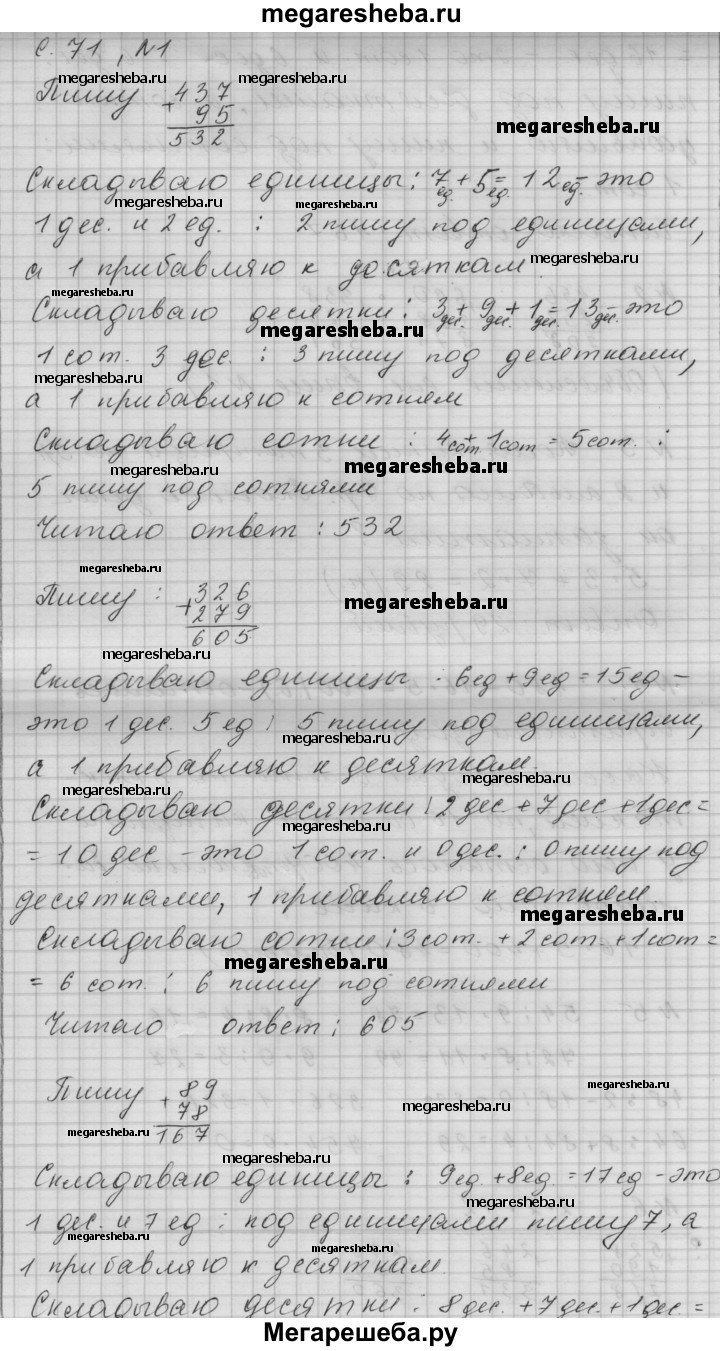 megaresheba.ru
с. 71, №1
megaresheba.ru megaresheba.ru
Пишу + 437
95
532
megaresheba.ru
megaresheba.ru
Складываю единицы: 7 ед. + 5 ед. = 12 ед. – это
megaresheba.ru megaresheba.ru
1 дес. и 2 ед. : 2 пишу под единицами,
а 1 прибавляю к десяткам.
megaresheba.ru
Складываю десятки: 3 дес. + 9 дес. + 1 дес. = 13 дес. – это
megaresheba.ru
1 сот. 3 дес. : 3 пишу под десятками,
megaresheba.ru megaresheba.ru
а 1 прибавляю к сотням
Складываю сотни : 4 сот. + 1 сот = 5 сот. :
megaresheba.ru megaresheba.ru
5 пишу под сотнями
Читаю ответ : 532
megaresheba.ru
Пишу : + 326
279
605
megaresheba.ru
megaresheba.ru
Складываю единицы : 6 ед + 9 ед = 15 ед –
это 1 дес. 5 ед : 5 пишу под единицами,
megaresheba.ru
а 1 прибавляю к десяткам.
megaresheba.ru megaresheba.ru
Складываю десятки : 2 дес + 7 дес + 1 дес =
megaresheba.ru
= 10 дес – это 1 сот. и 0 дес. : 0 пишу под
десятками, 1 прибавляю к сотням.
megaresheba.ru
Складываю сотни : 3 сот. + 2 сот. + 1 сот =
megaresheba.ru
= 6 сот. : 6 пишу под сотнями
Читаю ответ : 605
Пишу + 89
78
167
megaresheba.ru
megaresheba.ru
megaresheba.ru
megaresheba.ru
Складываю единицы : 9 ед. + 8 ед. = 17 ед – это
megaresheba.ru megaresheba.ru
1 дес. и 7 ед : под единицами пишу 7, а
megaresheba.ru
1 прибавляю к десяткам.
megaresheba.ru megaresheba.ru
Складываю десятки : 8 дес. + 7 дес. + 1 дес. =
Мегарешеба.ру